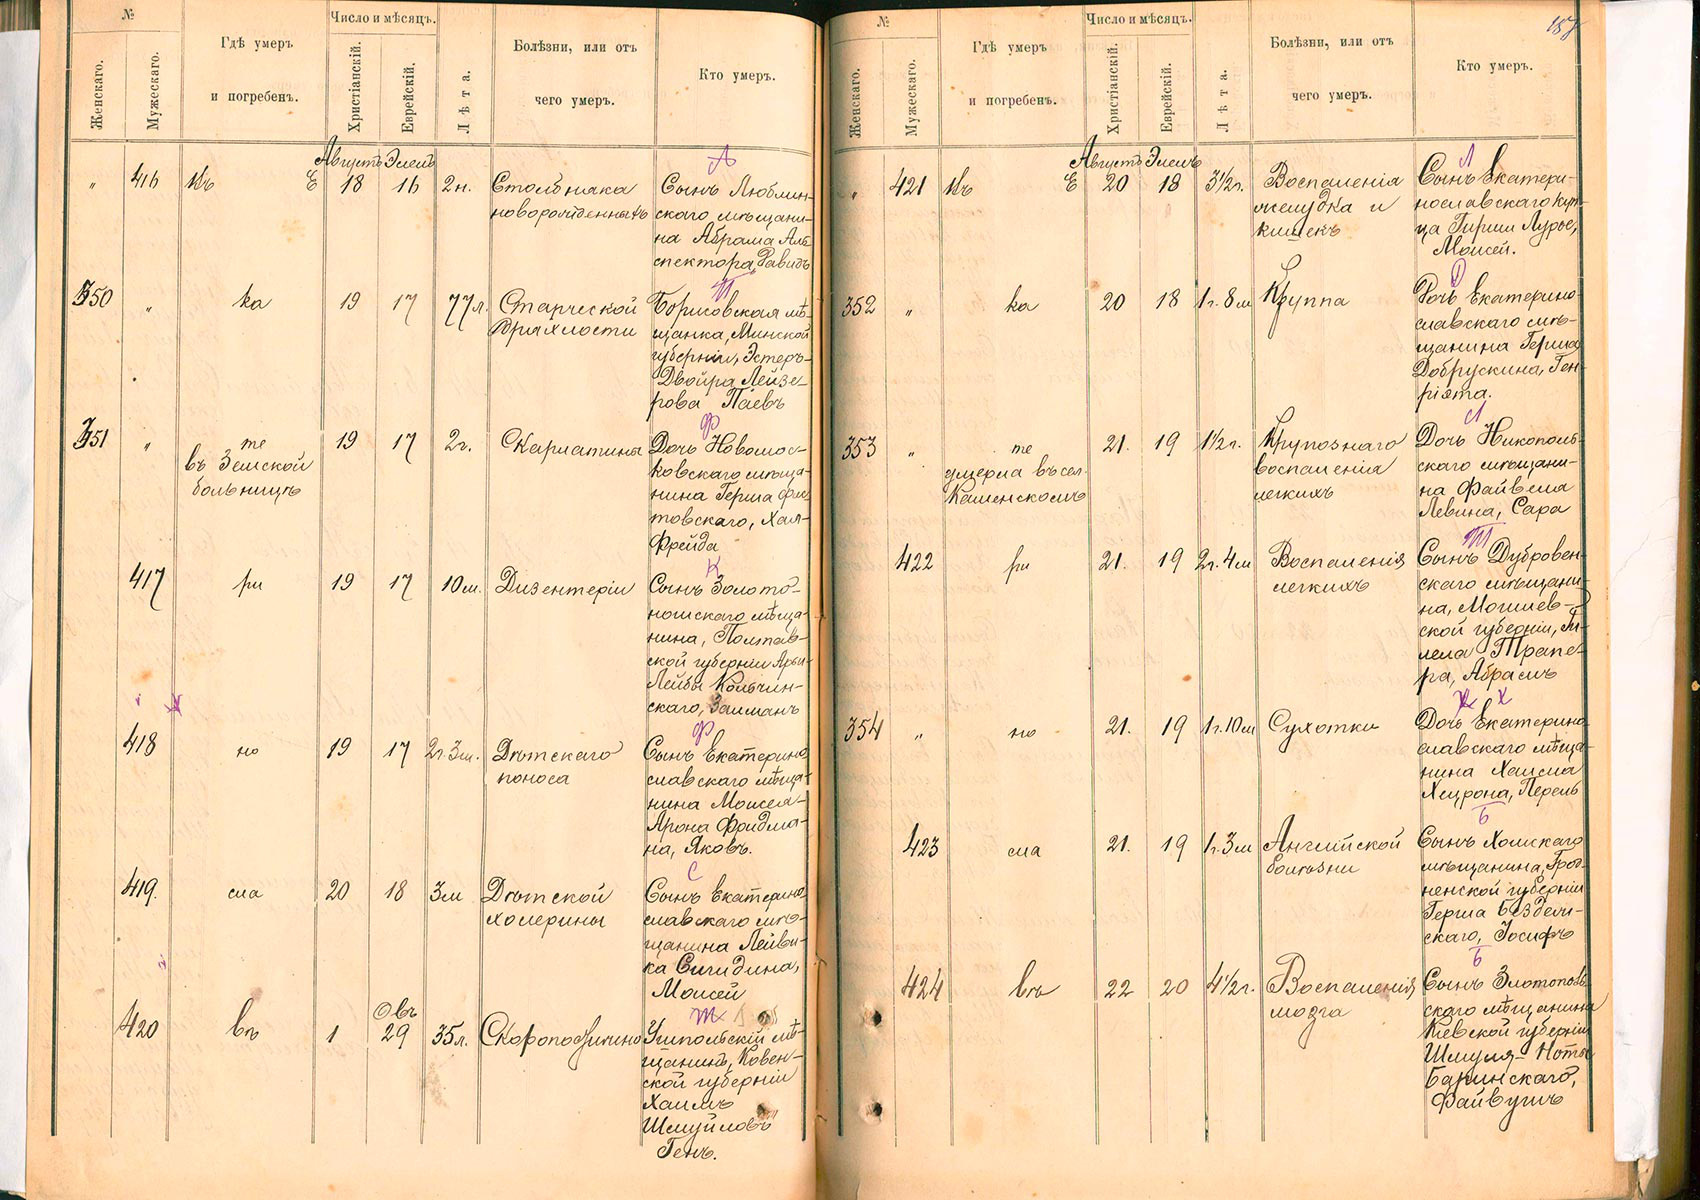 №
Число и мѣсяцъ.
Женскаго.
Мужескаго.
Гдѣ умеръ
и погребенъ.
Христіанскій.
Еврейскій.
Лѣта.
Болѣзни, или отъ
чего умеръ.
Кто умеръ.
Августъ Элелъ
А
" 416 Въ Е 18 16 2н. Столбняка
новорожденныхъ
Сынъ Люблин-
скаго мѣщани-
на Абрама
спектора, Давидъ
350 " ка 19 17 77л. Старческой
дряхлости
Борисовская мѣ-
щанка, Минской
губерніи, Эстеръ-
Двойра Лейзе-
рова Паевъ
Ф
351 " те 19 17 2г. Скарлатины
въ Земской
больницѣ
Дочь Новомос-
ковскаго мѣща-
нина Герша
товскаго, Хая-
Фрейда
К
417 ри 19 17 10м. Дизентеріи
Сынъ Золото-
ношскаго мѣща-
нина, Полтав-
ской губерніи Арьи-
Лейбы Кольчин-
скаго, Залманъ
Ф
418 но 19 17 2г. 3м. Дѣтскаго
поноса
Сынъ Екатерино
славскаго мѣща-
нина Моисея-
Арона Фридма-
на, Яковъ.
С
419. сла 20 18 3м Дѣтской
холерины
Сынъ Екатерино
славскаго мѣ-
щанина Лейви-
ка Сигидина,
Моисей
420 въ 1 Овъ 29 35л. Скоропостижно
Ушпольскій мѣ-
щанинъ, Ковен-
ской губерніи
Хаимъ
Шмуйловъ
Генъ.
187
№
Число и мѣсяцъ.
Женскаго.
Мужескаго.
Гдѣ умеръ
и погребенъ.
Христіанскій.
Еврейскій.
Лѣта.
Болѣзни, или отъ
чего умеръ.
Кто умеръ.
Августъ Элелъ
Л
" 421 Въ Е 20 18 3½г. Воспаленія
желудка и
кишекъ
Сынъ Екатери-
нославскаго куп-
ца Гирши Лурье,
Моисей.
Д
352 " ка 20 18 1г. 8м Круппа
Дочь Екатерино-
славскаго мѣ-
щанина Герша
Добрускина, Ген-
ріэта.
Л
353 " те 21. 19 1½г. Крупознаго
умерла въ сел.
Каменскомъ
воспаленія
легкихъ
Дочь Никополь-
скаго мѣщани-
на Файвела
Левина, Сара
Т
422 ри 21. 19 2г. 4м Воспаленія
легкихъ
Сынъ Дубровен-
скаго мѣщани-
на, Могилев-
ской губерніи, Ги-
лела Трапе-
ра, Абрамъ
Х
354 " но 21. 19 1г. 10м Сухотки
Дочь Екатерино
славскаго мѣща-
нина Хаима
Хецрона, Перель
Б
423 сла 21. 19 1г. 3м Англійской
болѣзни
Сынъ Холмскаго
мѣщанина, Грод-
ненской губерніи
Герша Бездель-
скаго, Іосифъ
Б
424 въ 22 20 4½г. Воспаленія
мозга
Сынъ Златополь-
скаго мѣщанина
Кіевской губерніи
Шмуля-Ноты
Баринскаго,
Файвушъ